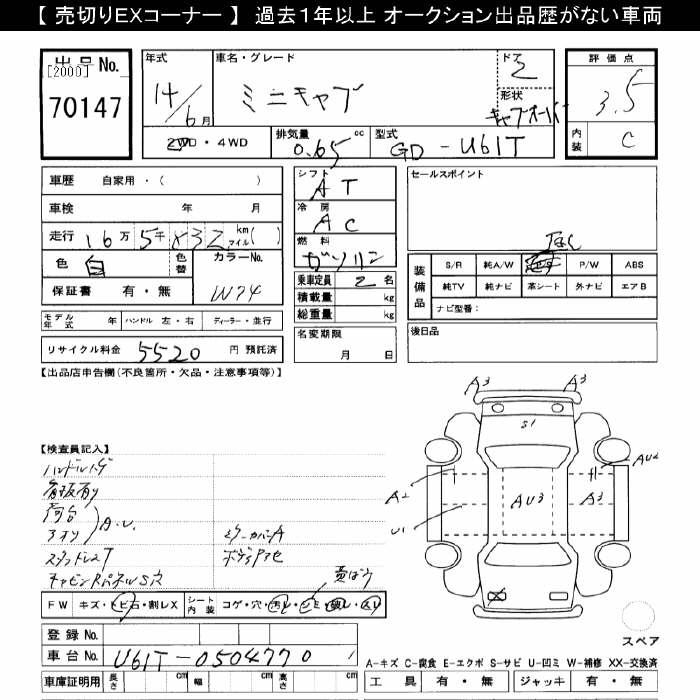 【 売切りEXコーナー 】 過去1年以上 オークション出品歴がない車両
出品 No.
[2000]
70147
年式
14/6月
車名・グレード
ミニキャブ
ドア
2
形状
キャブオーバ
評価点
3.5
内装
C
2WD・4WD
排気量
0.65cc
型式
GD-U61T
車歴 自家用・( )
車検 年 月
走行 16万5千 km マイル( )
色 白 色替 カラーNo.
W74
保証書 有・無
モデル年式 年 ハンドル 左・右 ディーラー・並行
リサイクル料金 5520 円 預託済
シフト
AT
冷房
AC
燃料
ガソリン
乗車定員 2 名
積載量 kg
総重量 kg
名変期限
月 日
セールスポイント
装備品
S/R 純A/W P/W ABS
純TV 純ナビ 革シート 外ナビ エアB
ナビ型番:
後日品
【出品店申告欄(不良箇所・欠品・注意事項等)】
【検査員記入】
A.U.
FW キズ・トビ石・割レX シート内装 コゲ・穴・汚レ・シミ・破レ・スレ
登録 No.
車台 No. U61T-0504770
車庫証明用 長さ cm 幅 cm 高さ cm
A3 A3
S1
AU2
A2 AU3 A3
U1
スペア
A-キズ C-腐食 E-エクボ S-サビ U-凹ミ W-補修 XX-交換済
工具 有・無 ジャッキ 有・無